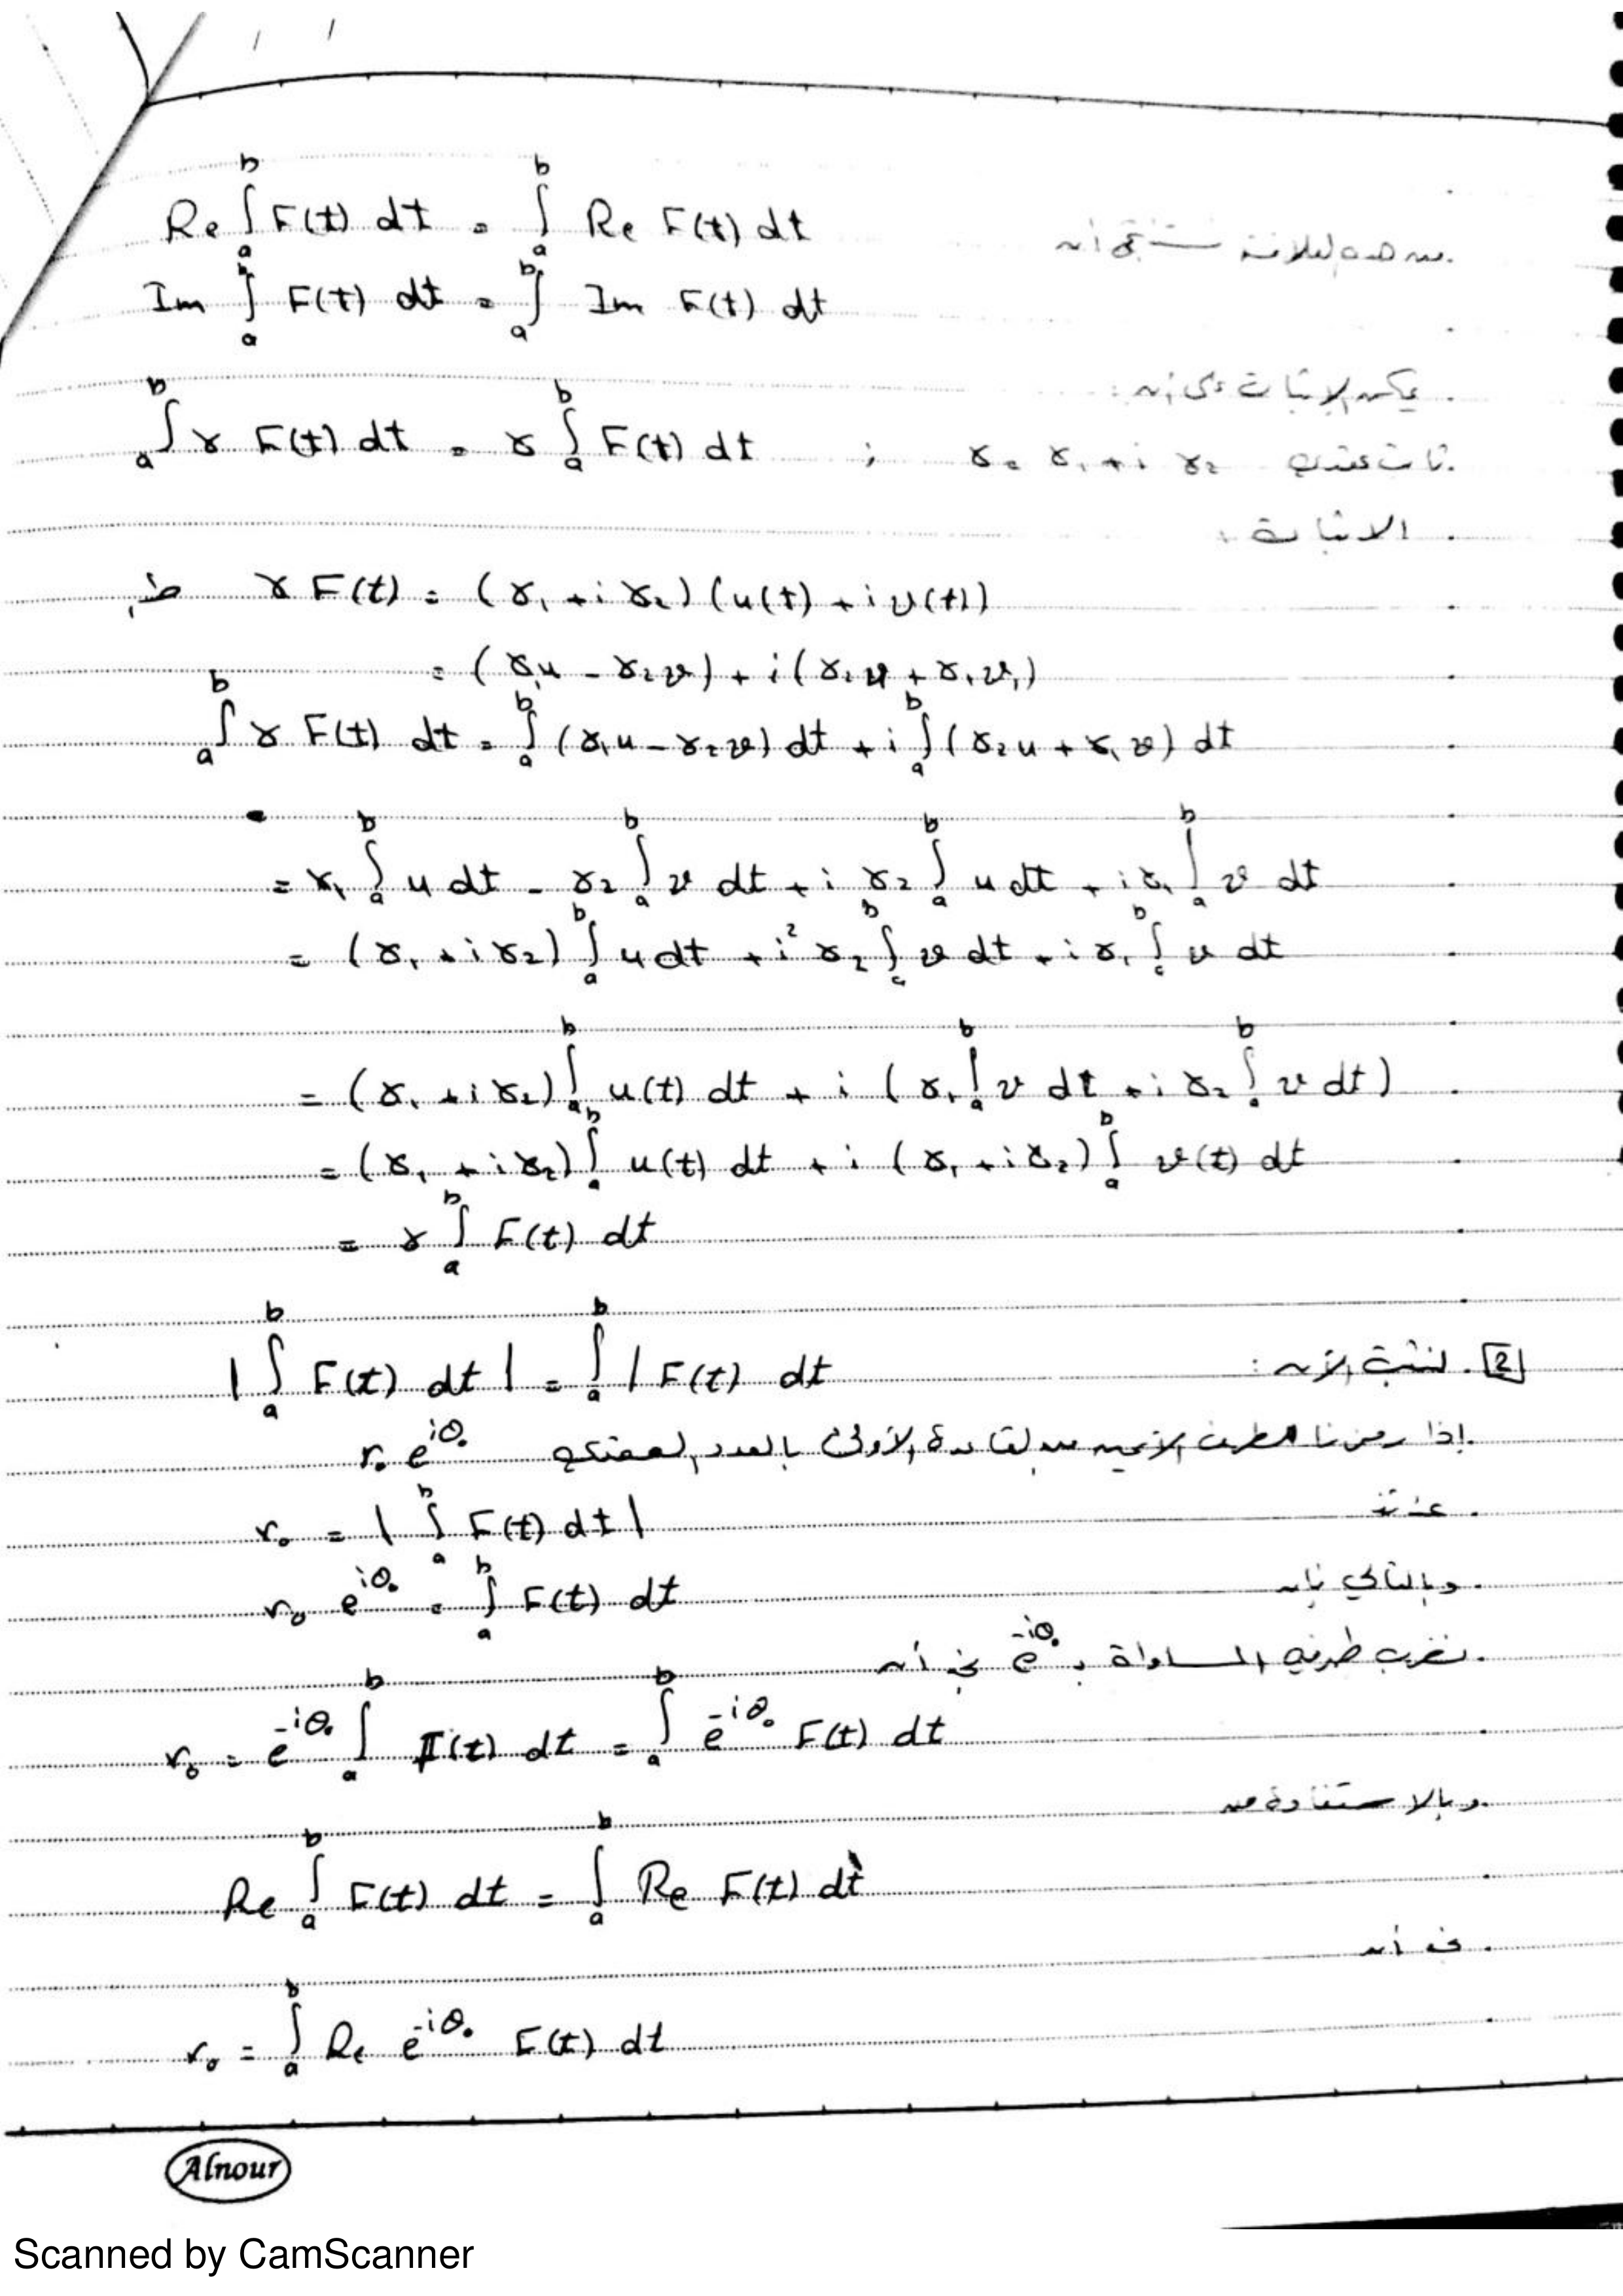 من هذه العلاقة نستنتج أن
Re ∫_a^b F(t) dt = ∫_a^b Re F(t) dt
Im ∫_a^b F(t) dt = ∫_a^b Im F(t) dt
يمكن الإثبات على أن:
∫_a^b γ F(t) dt = γ ∫_a^b F(t) dt ; γ = γ₁ + i γ₂ ثابت عقدي
الاثبات:
γ F(t) = (γ₁ + i γ₂) (u(t) + i v(t))
= (γ₁u - γ₂v) + i (γ₂u + γ₁v)
∫_a^b γ F(t) dt = ∫_a^b (γ₁u - γ₂v) dt + i ∫_a^b (γ₂u + γ₁v) dt
= γ₁ ∫_a^b u dt - γ₂ ∫_a^b v dt + i γ₂ ∫_a^b u dt + i γ₁ ∫_a^b v dt
= (γ₁ + i γ₂) ∫_a^b u dt + i² γ₂ ∫_a^b v dt + i γ₁ ∫_a^b v dt
= (γ₁ + i γ₂) ∫_a^b u(t) dt + i (γ₁ ∫_a^b v dt + i γ₂ ∫_a^b v dt)
= (γ₁ + i γ₂) ∫_a^b u(t) dt + i (γ₁ + i γ₂) ∫_a^b v(t) dt
= γ ∫_a^b F(t) dt
[2] لنثبت الآن:
| ∫_a^b F(t) dt | = ∫_a^b | F(t) dt
إذا رمزنا للطرف الأيمن من القاعدة الأولى بالعدد العقدي r₀ e^{iθ₀}
عندئذ
r₀ = | ∫_a^b F(t) dt |
وبالتالي فإن
r₀ e^{iθ₀} = ∫_a^b F(t) dt
نضرب طرفي المساواة بـ e^{-iθ₀} نجد أن
r₀ = e^{-iθ₀} ∫_a^b F(t) dt = ∫_a^b e^{-iθ₀} F(t) dt
وبالاستفادة من
Re ∫_a^b F(t) dt = ∫_a^b Re F(t) dt
نجد أن
r₀ = ∫_a^b Re e^{-iθ₀} F(t) dt
Alnour
Scanned by CamScanner